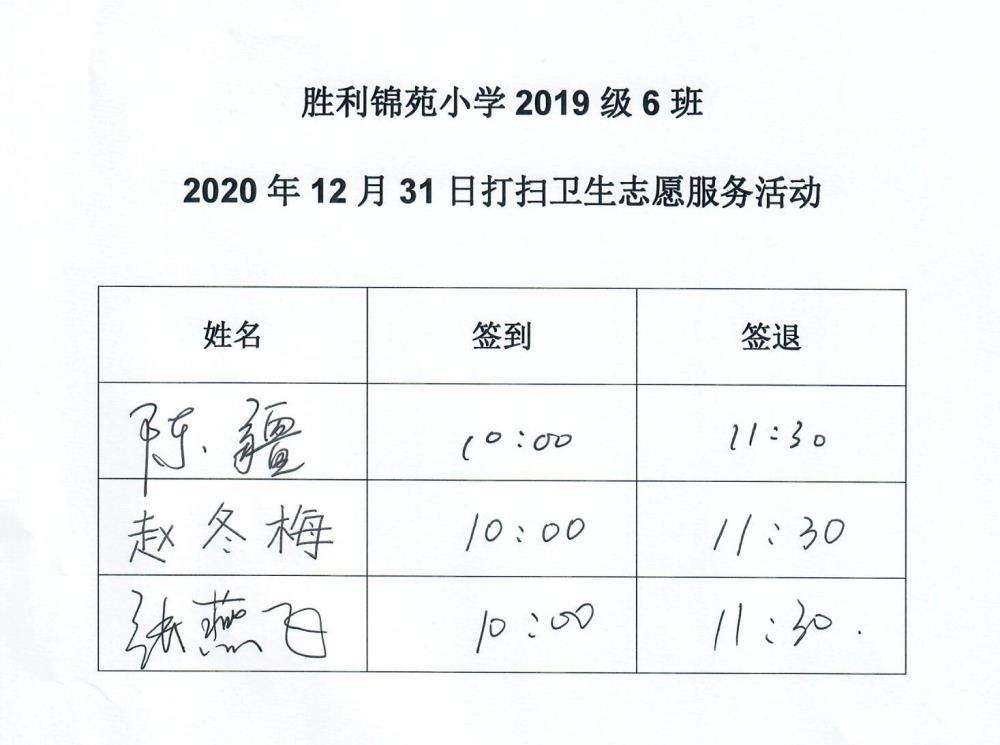 胜利锦苑小学 2019 级 6 班
2020 年 12 月 31 日打扫卫生志愿服务活动
姓名 签到 签退
陈疆 10:00 11:30
赵冬梅 10:00 11:30
张燕飞 10:00 11:30